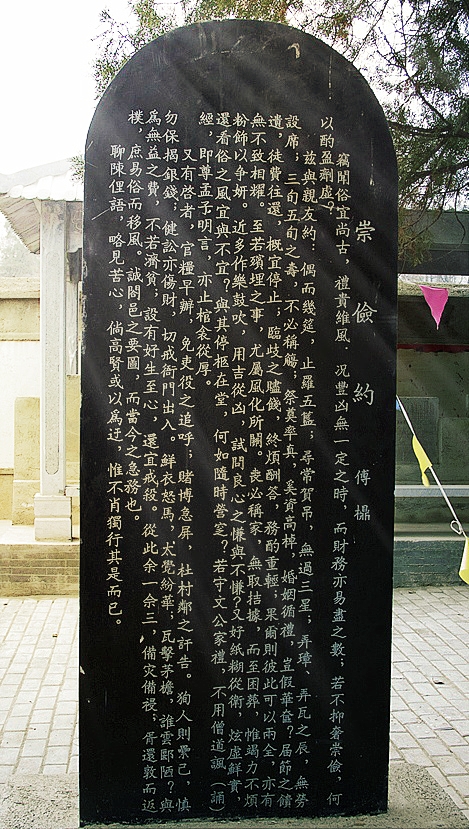 崇儉約 傅
竊聞俗宜尚古，禮貴維風，況豐凶無一定之時，而財務亦易盡之數；若不抑奢崇儉，何
以酌盈劑虛？
茲與親友約：偶而幾筵，止羅五簋；尋常賀吊，無過三星；弄璋、弄瓦之辰，無勞
設席；三旬五旬之壽，不必稱觴；祭奠率真，奚資高棹，婚姻循禮，豈假華奩？届節之餽
遺，徒費往還，概宜停止；臨歧之贐餞，終煩酬答，務酌重輕；果爾則彼此可以兩全，亦有
無不致相耀。至若殯埋之事，尤屬風化所關。喪必稱家，無取拮據，而至困葬，惟竭力不煩
粉飾以争妍。近多作樂鼓吹，用吉從凶，試問良心之慊與不慊？又好紙糊從衛，炫虛鮮實，
還看俗之風宜與不宜？與其停柩在堂，何如隨時營窆？若守文公家禮，不用僧道諷（誦）
經，即尊孟子明言，亦止棺衾從厚。
又有啓者，官糧早辦，免吏役之追呼；賭博急屏，杜村鄰之訐告。狥人則喪己，慎
勿保揭銀錢；健訟亦傷財，切戒衙門出入。鮮衣怒馬，太覺紛華，瓦擊茅檐，誰雲鄙陋？與
爲無益之費，不若濟貧，設有好生至心，還宜戒殺。從此余一余三，備灾備祲；胥還敦而返
樸，庶易俗而移風。誠閤邑之要圖，而當今之急務也。
聊陳俚語，略見苦心，倘高賢或以爲迂，惟不肖獨行其是而已。